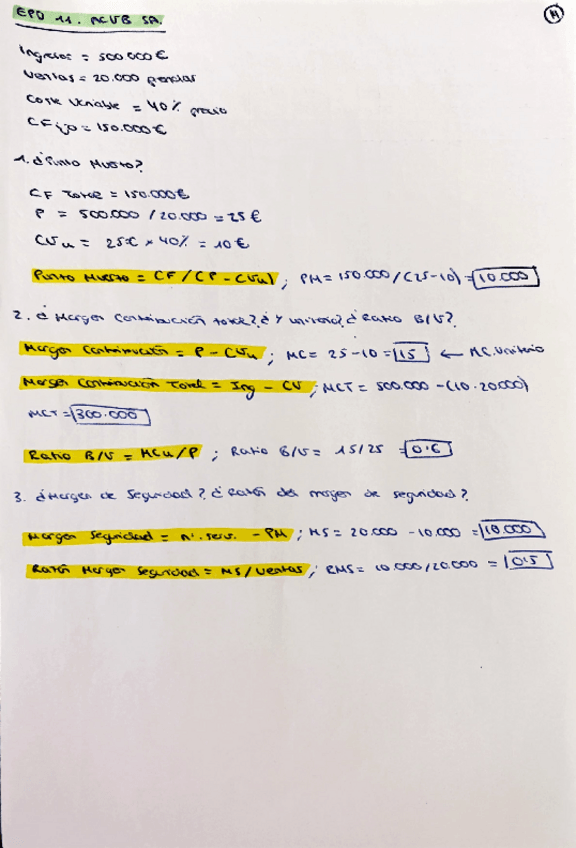 EPD 11. ACUB SA.
11
Ingresos = 500.000€
Ventas = 20.000 prendas
Coste Variable = 40% precio
CFijo = 150.000€
1. ¿Punto Muerto?
CF Total = 150.000€
P = 500.000 / 20.000 = 25 €
CVu = 25€ x 40% = 10€
Punto Muerto = CF/(P-CVu) ; PM = 150.000/(25-10) = 10.000
2. ¿Margen Contribución total? ¿Y unitario? ¿Ratio B/V?
Margen Contribución = P - CVu ; MC = 25-10 = 15 ← MC. Unitario
Margen Contribución Total = Ing - CV ; MCT = 500.000 - (10·20.000)
MCT = 300.000
Ratio B/V = MCu/P ; Ratio B/V = 15/25 = 0'6
3. ¿Margen de Seguridad? ¿Razón del margen de seguridad?
Margen Seguridad = nº. serv. - PM ; MS = 20.000 - 10.000 = 10.000
Razón Margen Seguridad = MS/Ventas ; RMS = 10.000/20.000 = 0'5